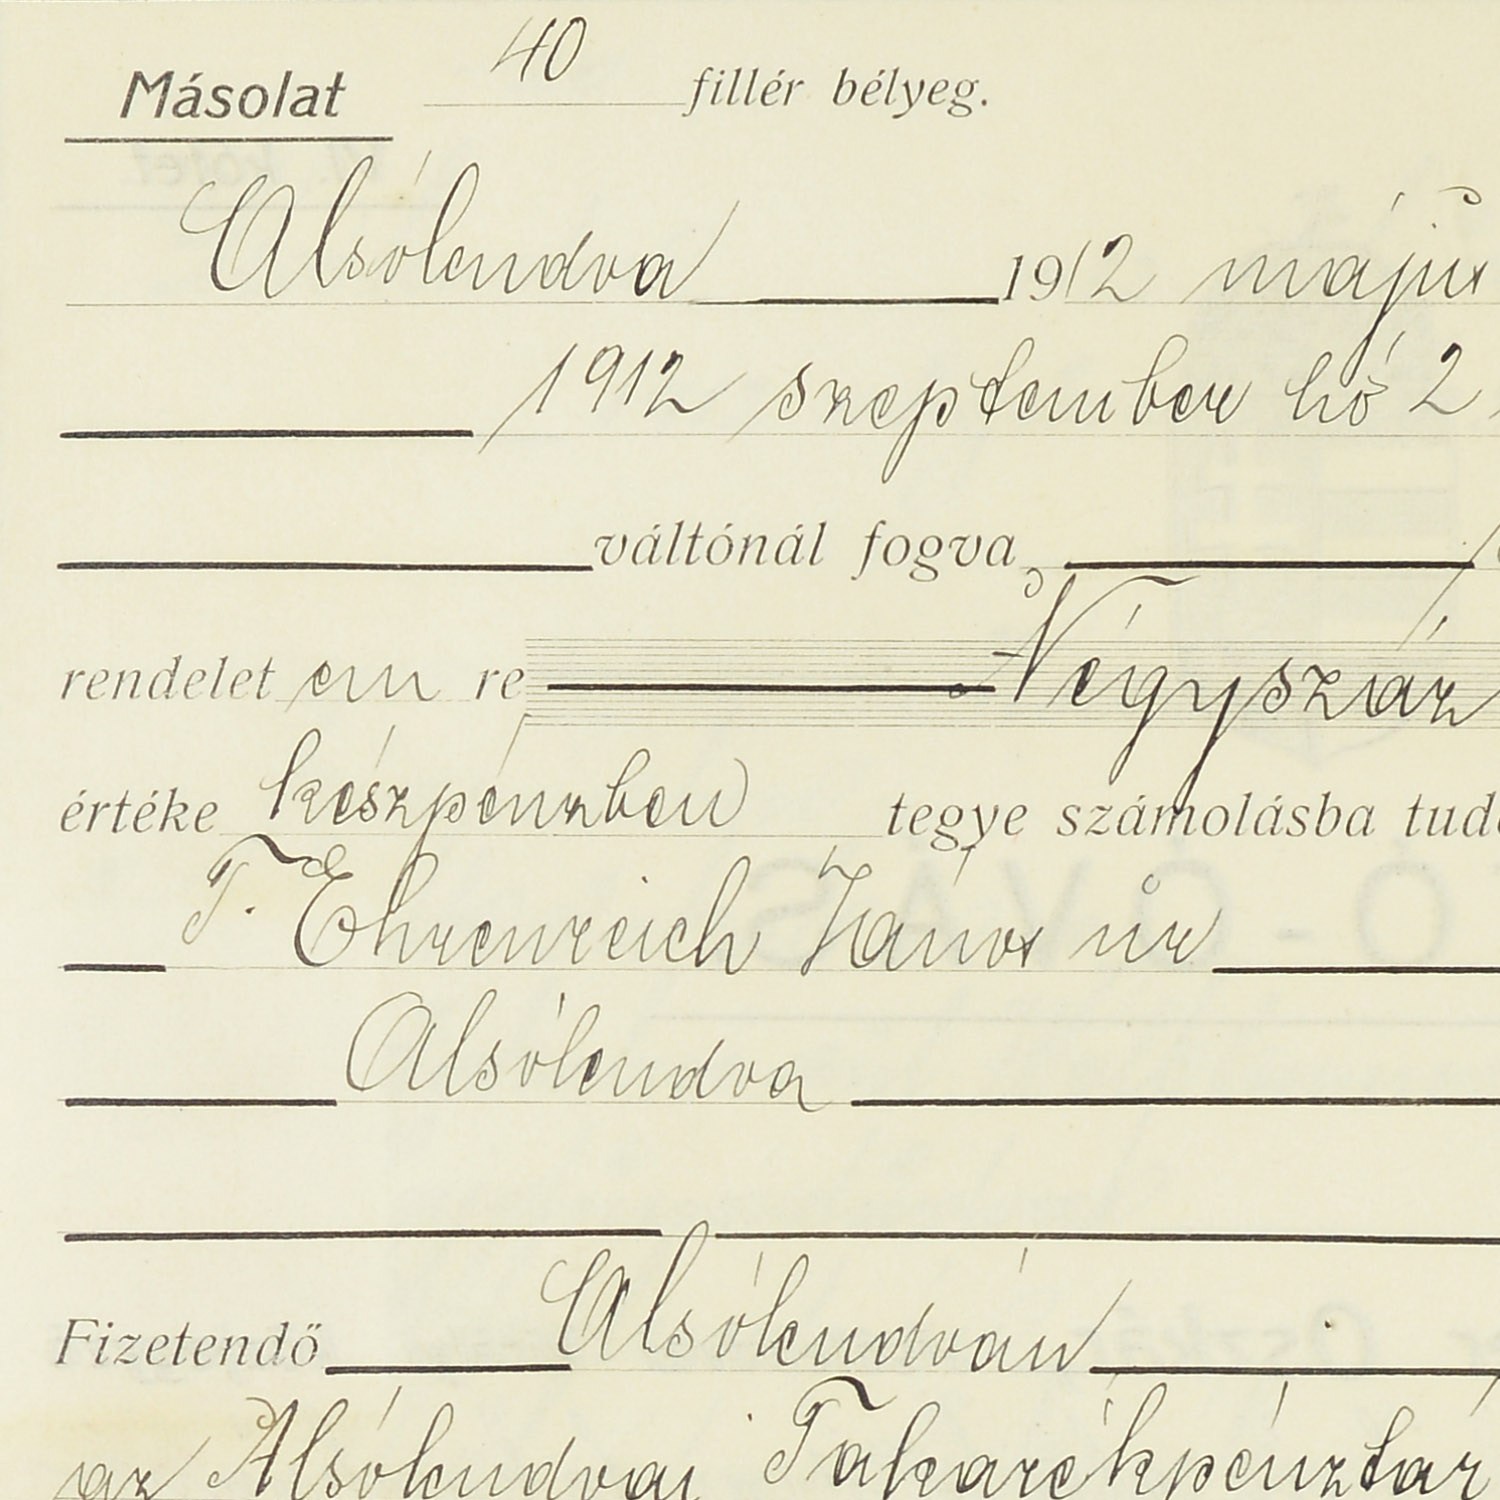 Másolat 40 fillér bélyeg.
Alsólendva 1912 május
1912 szeptember hó 2
váltónál fogva,
rendelet em re Négyszáz
értéke készpénzben tegye számolásba
T. Ehrenreich János úr
Alsólendva
Fizetendő Alsólendván
az Alsólendvai Takarékpénztár